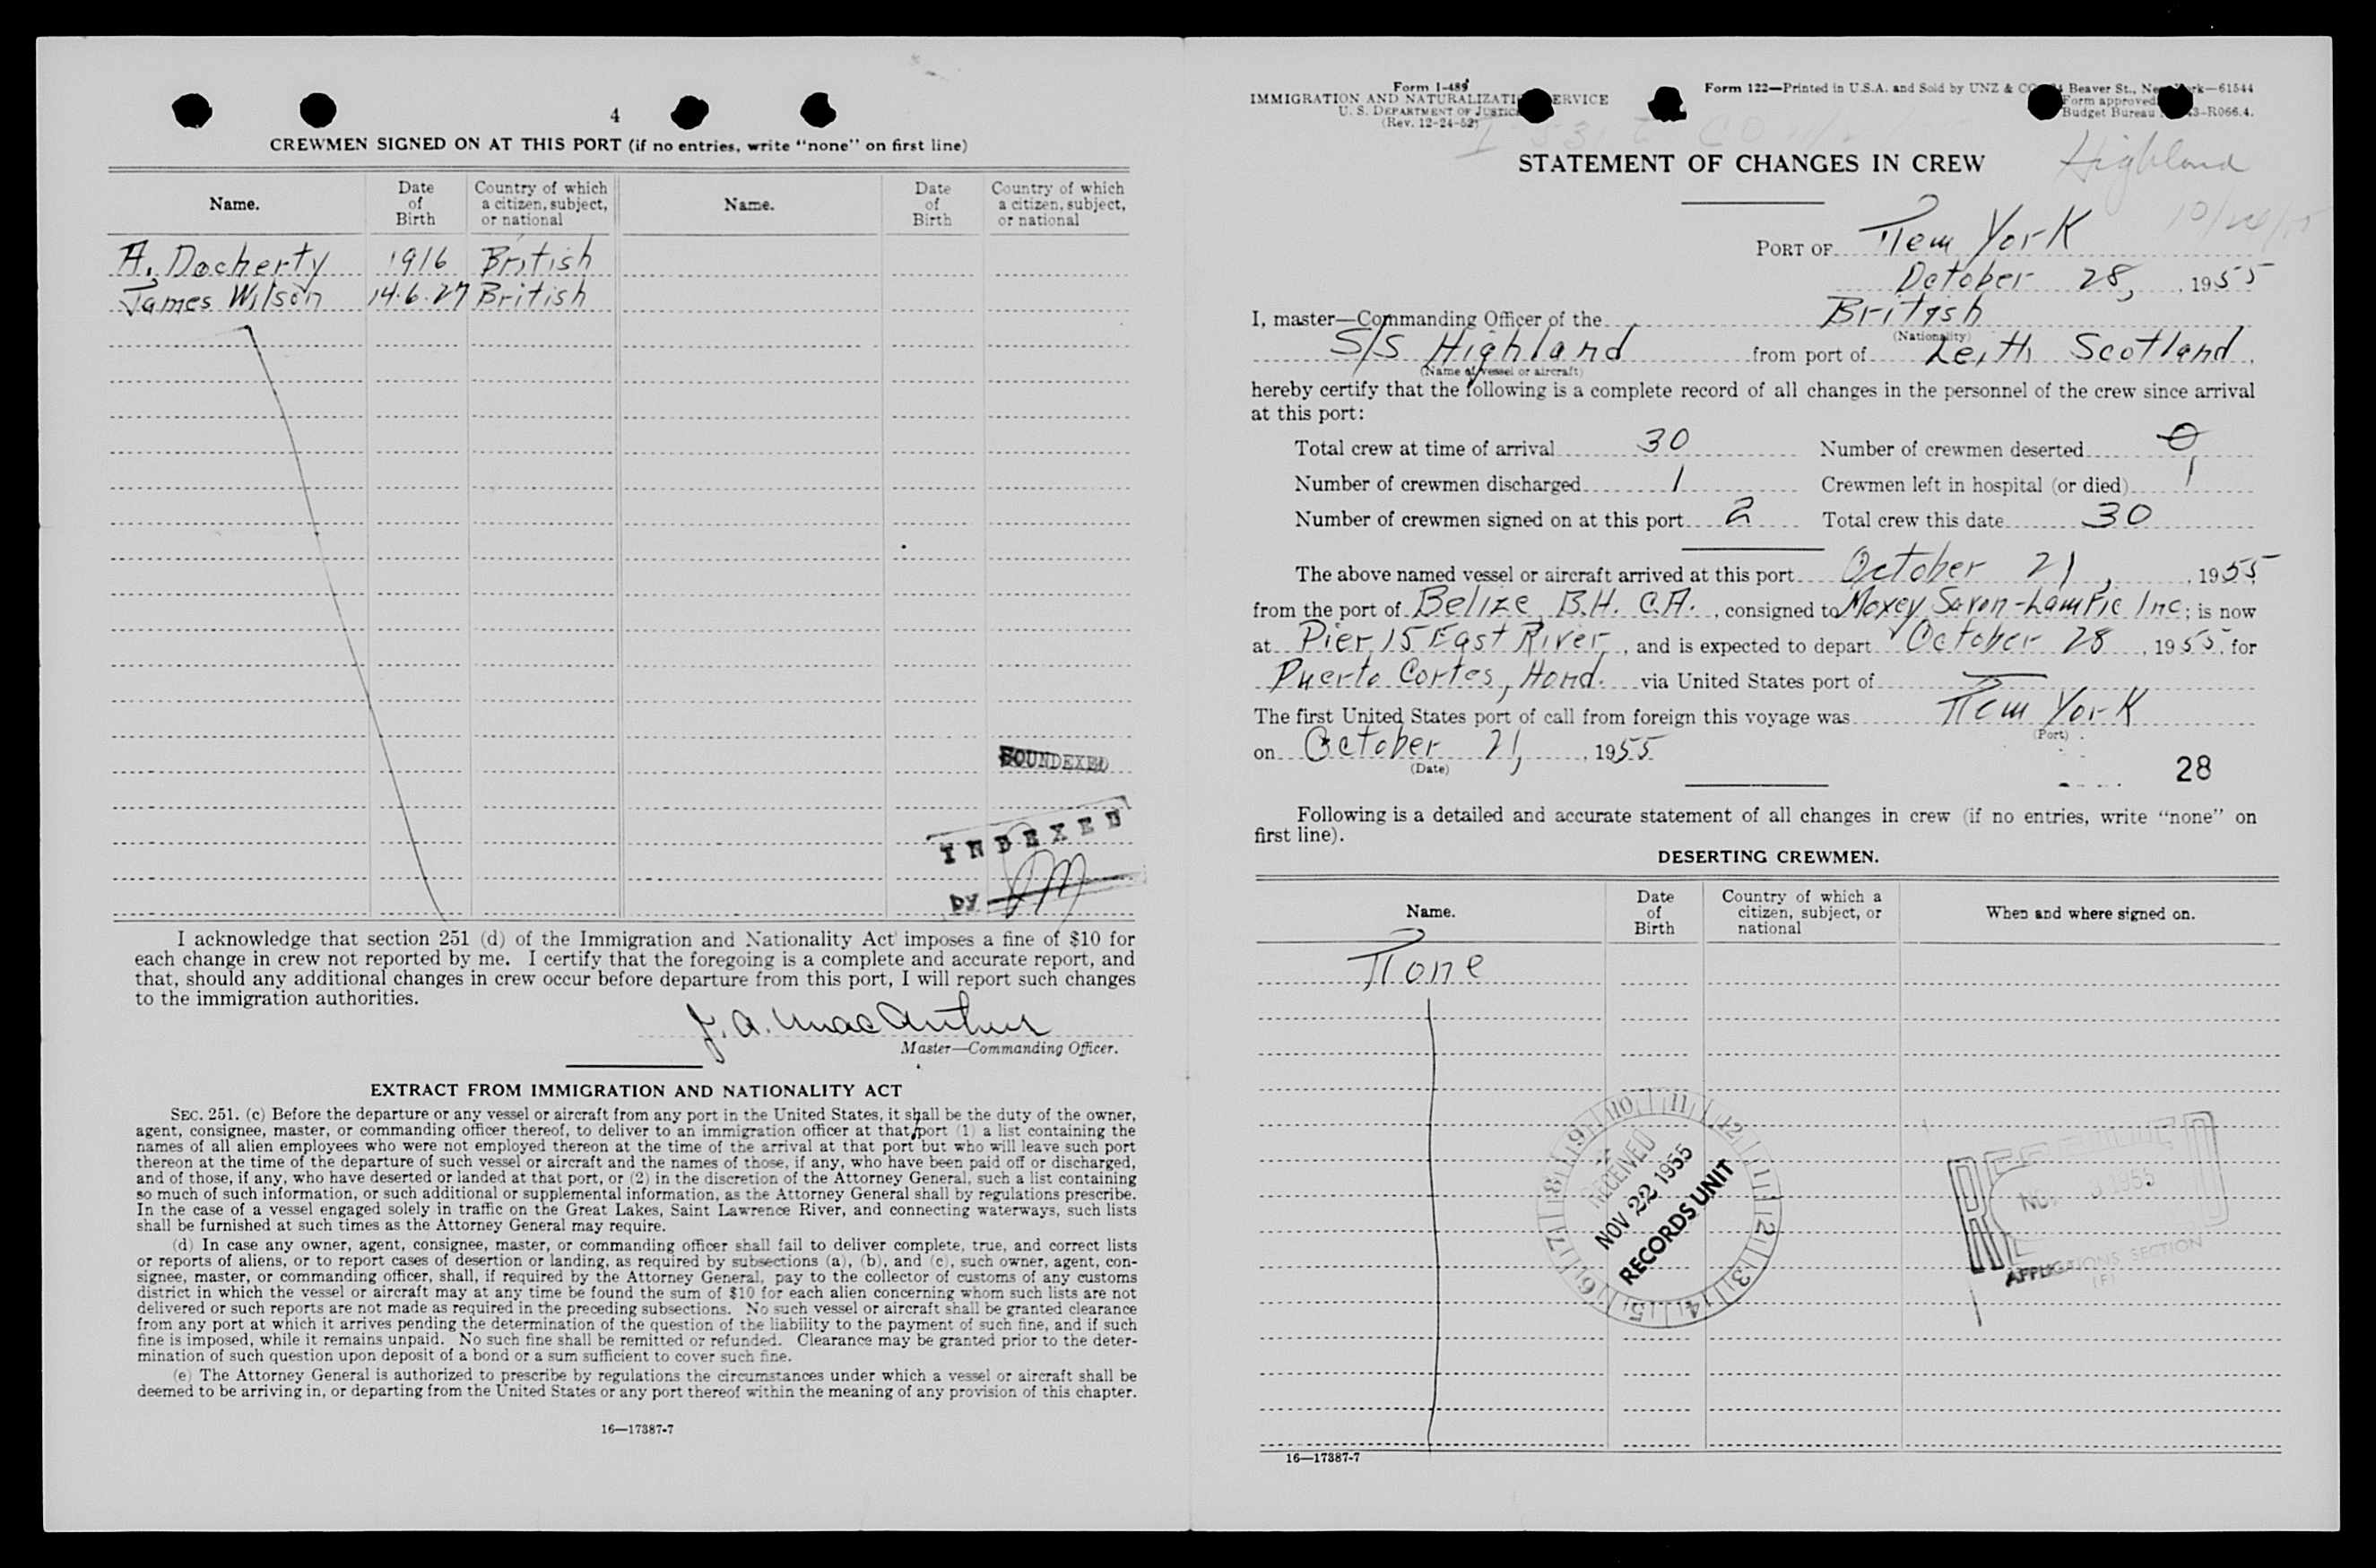 4
CREWMEN SIGNED ON AT THIS PORT (if no entries, write "none" on first line)
Name. Date of Birth Country of which a citizen, subject, or national Name. Date of Birth Country of which a citizen, subject, or national
A. Docherty 1916 British
James Wilson 14.6.27 British
SOUNDEXED
INDEXED
by
I acknowledge that section 251 (d) of the Immigration and Nationality Act imposes a fine of $10 for
each change in crew not reported by me. I certify that the foregoing is a complete and accurate report, and
that, should any additional changes in crew occur before departure from this port, I will report such changes
to the immigration authorities.
J. A. MacArthur
Master—Commanding Officer.
EXTRACT FROM IMMIGRATION AND NATIONALITY ACT
SEC. 251. (c) Before the departure or any vessel or aircraft from any port in the United States, it shall be the duty of the owner,
agent, consignee, master, or commanding officer thereof, to deliver to an immigration officer at that port (1) a list containing the
names of all alien employees who were not employed thereon at the time of the arrival at that port but who will leave such port
thereon at the time of the departure of such vessel or aircraft and the names of those, if any, who have been paid off or discharged,
and of those, if any, who have deserted or landed at that port, or (2) in the discretion of the Attorney General, such a list containing
so much of such information, or such additional or supplemental information, as the Attorney General shall by regulations prescribe.
In the case of a vessel engaged solely in traffic on the Great Lakes, Saint Lawrence River, and connecting waterways, such lists
shall be furnished at such times as the Attorney General may require.
(d) In case any owner, agent, consignee, master, or commanding officer shall fail to deliver complete, true, and correct lists
or reports of aliens, or to report cases of desertion or landing, as required by subsections (a), (b), and (c), such owner, agent, con-
signee, master, or commanding officer, shall, if required by the Attorney General, pay to the collector of customs of any customs
district in which the vessel or aircraft may at any time be found the sum of $10 for each alien concerning whom such lists are not
delivered or such reports are not made as required in the preceding subsections. No such vessel or aircraft shall be granted clearance
from any port at which it arrives pending the determination of the question of the liability to the payment of such fine, and if such
fine is imposed, while it remains unpaid. No such fine shall be remitted or refunded. Clearance may be granted prior to the deter-
mination of such question upon deposit of a bond or a sum sufficient to cover such fine.
(e) The Attorney General is authorized to prescribe by regulations the circumstances under which a vessel or aircraft shall be
deemed to be arriving in, or departing from the United States or any port thereof within the meaning of any provision of this chapter.
16—17387-7
Form I-489
IMMIGRATION AND NATURALIZATION SERVICE
U. S. DEPARTMENT OF JUSTICE
(Rev. 12-24-52)
Form 122—Printed in U.S.A. and Sold by UNZ & CO Beaver St., New York—61544
Form approved
Budget Bureau 43-R066.4.
Highland
STATEMENT OF CHANGES IN CREW
PORT OF New York
October 28, 1955
I, master—Commanding Officer of the British
(Nationality)
S/S Highland from port of Leith Scotland,
(Name of vessel or aircraft)
hereby certify that the following is a complete record of all changes in the personnel of the crew since arrival
at this port:
Total crew at time of arrival 30 Number of crewmen deserted 0
Number of crewmen discharged 1 Crewmen left in hospital (or died) 1
Number of crewmen signed on at this port 2 Total crew this date 30
The above named vessel or aircraft arrived at this port October 21, 1955
from the port of Belize B.H. C.A., consigned to Moxey Savon-Lampic Inc; is now
at Pier 15 East River, and is expected to depart October 28, 1955 for
Puerto Cortes, Hond. via United States port of
The first United States port of call from foreign this voyage was New York
(Port)
on October 21, 1955
(Date)
28
Following is a detailed and accurate statement of all changes in crew (if no entries, write "none" on
first line).
DESERTING CREWMEN.
Name. Date of Birth Country of which a citizen, subject, or national When and where signed on.
None
10 11 12 1 2 3 4 5 6 7 8 9
RECEIVED
NOV 22 1955
RECORDS UNIT
RECEIVED
NOV 1955
APPLICATIONS SECTION
(F)
16—17387-7